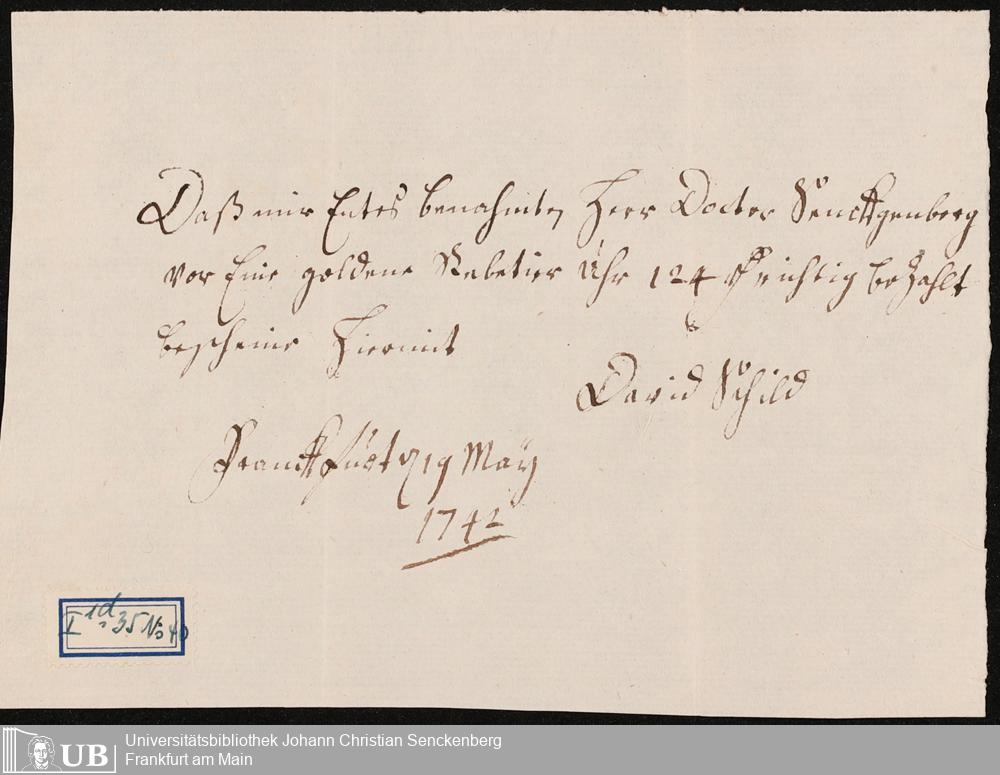 Daß mir Entes benahmten Herr Doctor Senckgenberg
vor Eine goldene Rebetier Uhr 124 f richtig bezahlt
bescheine Hiermit
David Schild
Franckfurt d 19 May
1742
I 1d 35 No 40
UB
Universitätsbibliothek Johann Christian Senckenberg
Frankfurt am Main